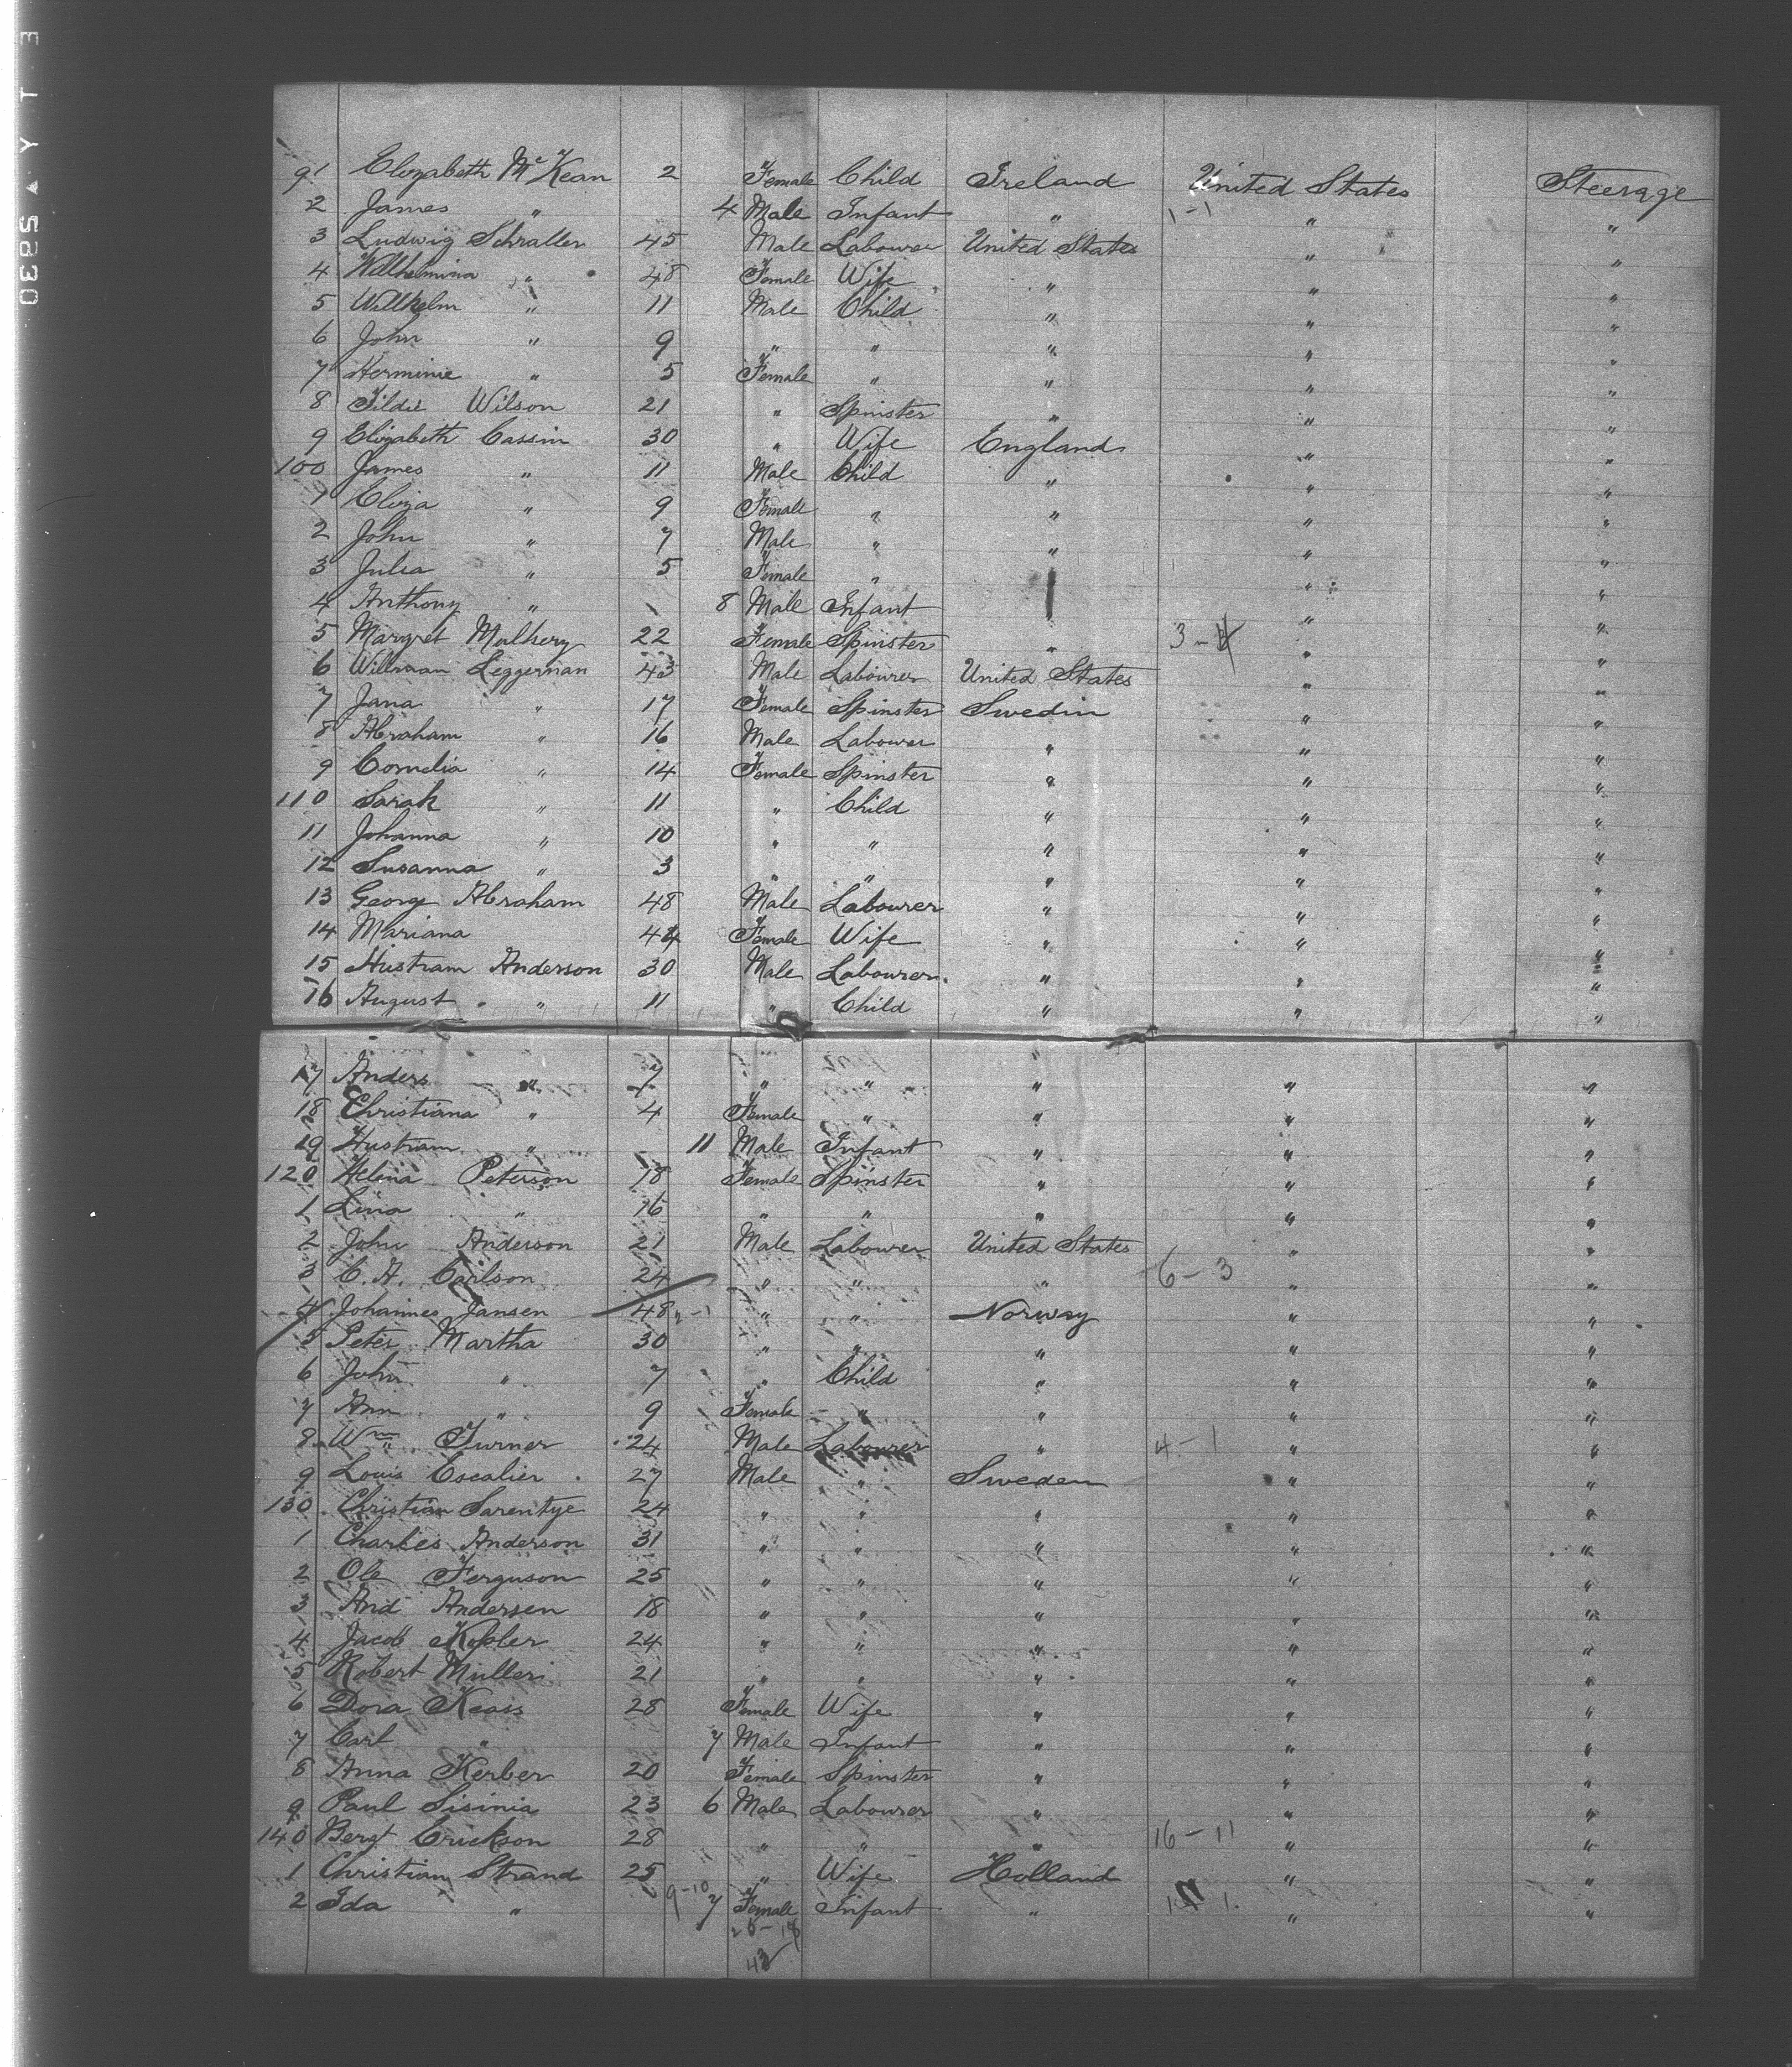 91 Elizabeth McKean 2 Female Child Ireland United States Steerage
2 James " 4 Male Infant " 1-1 " "
3 Ludwig Schraller 45 Male Labourer United States " "
4 Wilhelmina " 48 Female Wife " " "
5 Willhelm " 11 Male Child " " "
6 John " 9 " " " " "
7 Herminie " 5 Female " " " "
8 Tildie Wilson 21 " Spinster " " "
9 Elizabeth Cassin 30 " Wife England " "
100 James " 11 Male Child " " "
1 Eliza " 9 Female " " " "
2 John " 7 Male " " " "
3 Julia " 5 Female " " "
4 Anthony " 8 Male Infant " "
5 Margret Malhery 22 Female Spinster " 3- " "
6 Willman Leggerman 43 Male Labourer United States " "
7 Jana " 17 Female Spinster Swedin " "
8 Abraham " 16 Male Labourer " " "
9 Cornelia " 14 Female Spinster " " "
110 Sarah " 11 " Child " " "
11 Johanna " 10 " " " " "
12 Susanna " 3 " " " " "
13 Georg Abraham 48 Male Labourer " " "
14 Mariana 44 Female Wife " " "
15 Hustram Anderson 30 Male Labourer " " "
16 August " 11 " Child " " "
17 Anders " 7 " " " " "
18 Christiana " 4 Female " " " "
19 Hustram " 11 Male Infant " " "
120 Helena Peterson 18 Female Spinster " " "
1 Lina " 16 " " " " "
2 John Anderson 21 Male Labourer United States " "
3 C. A. Carlson 24 " " " 6-3 " "
4 Johannes Jansen 48 " " Norway " "
5 Peter Martha 30 " " " " "
6 John " 7 " Child " " "
7 Ann " 9 Female " " " "
8 Wm Turner 24 Male Labourer " 4-1 " "
9 Louis Escalier 27 Male " Sweden " "
130 Christian Sarentye 24 " " " " "
1 Charles Anderson 31 " " " " "
2 Ole Ferguson 25 " " " " "
3 And Andersen 18 " " " " "
4 Jacob Kepler 24 " " " " "
5 Robert Muller 21 " " " " "
6 Dora Keass 28 Female Wife " " "
7 Carl " 7 Male Infant " " "
8 Anna Kerber 20 Female Spinster " " "
9 Paul Sisinia 23 6 Male Labourer " " "
140 Bergt Erickson 28 " " " 16-11 " "
1 Christian Strand 25 " Wife Holland " "
2 Ida " 9-10 7 Female Infant " " "